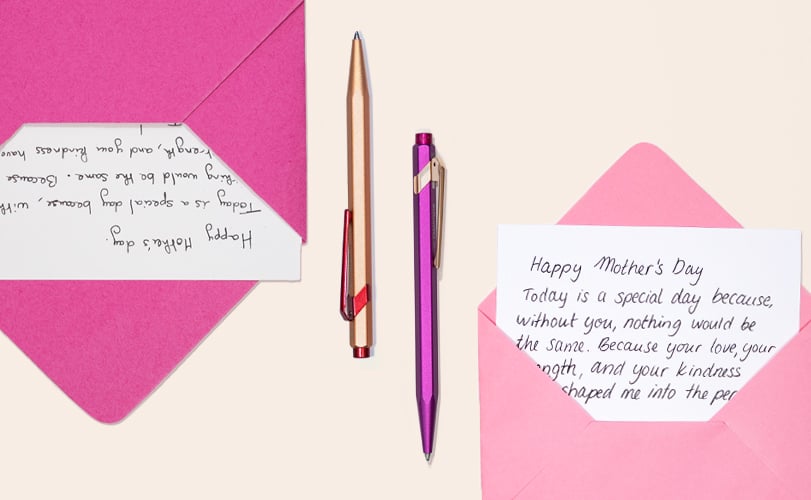 Happy Mother's day.
Today is a special day because, with
thing would be the same. Because
trength, and you kindness have
Happy Mother's Day
Today is a special day because,
without you, nothing would be
the same. Because your love, your
ength, and your kindness
shaped me into the per